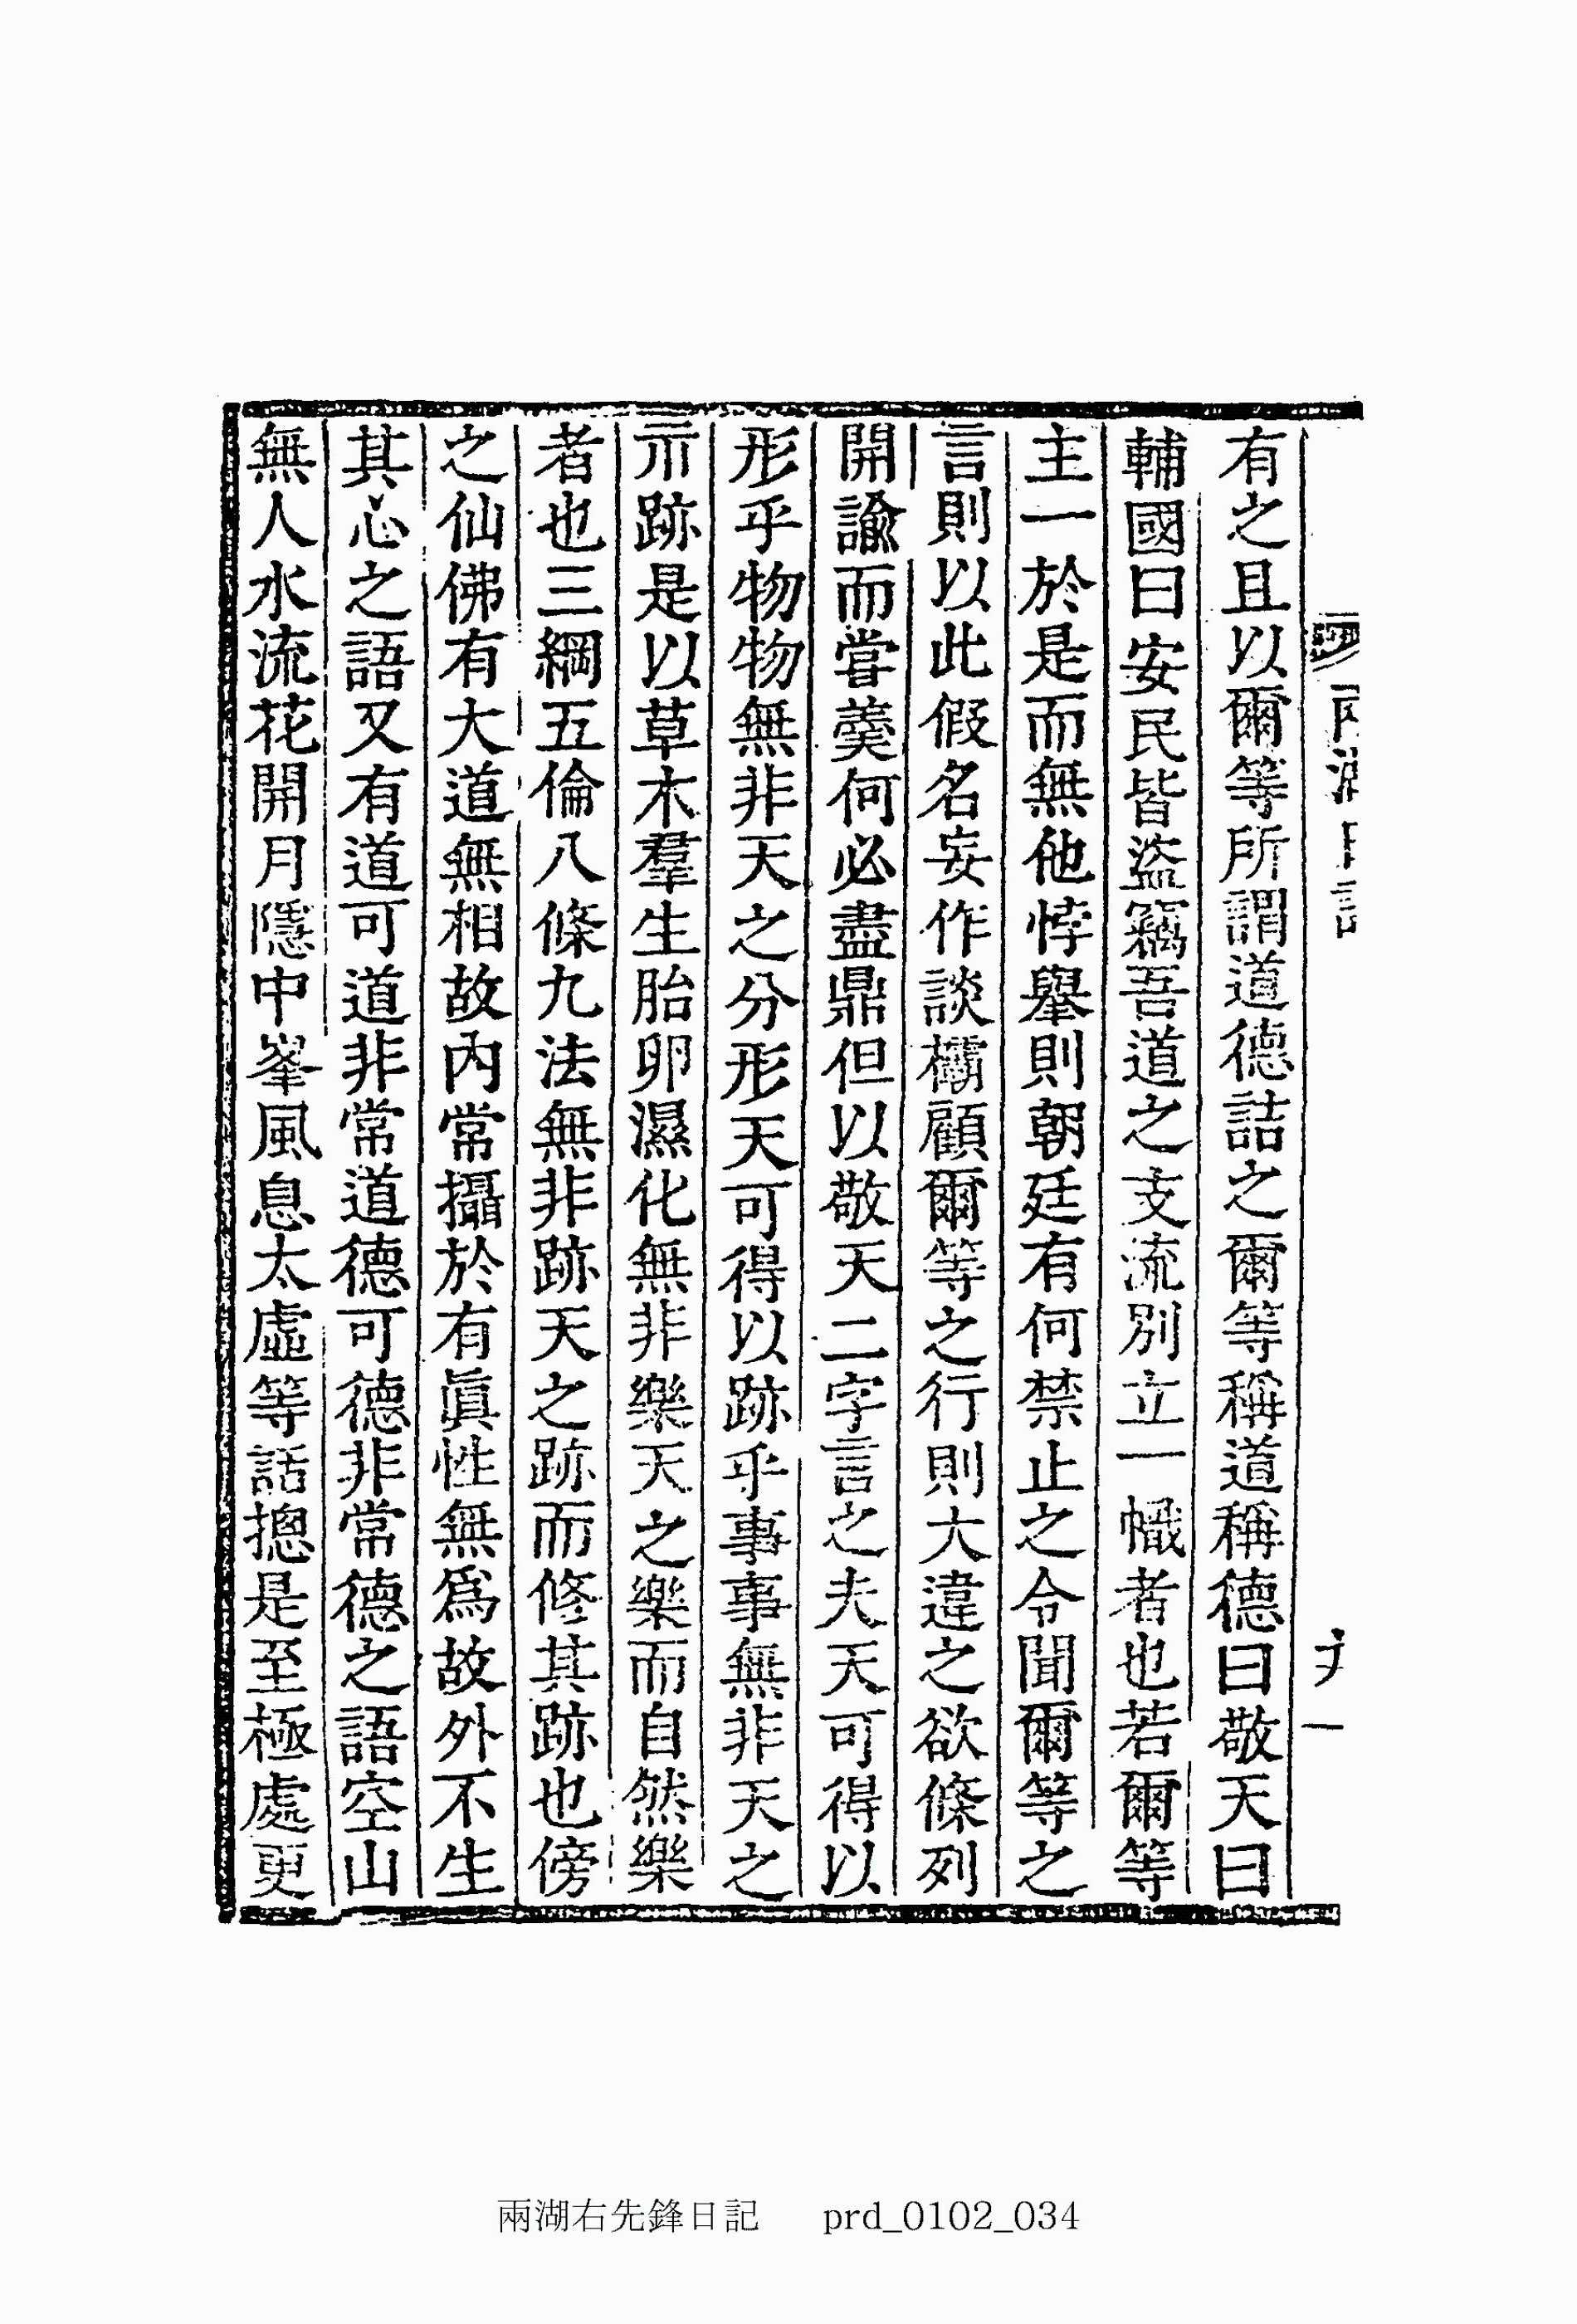 有之且以爾等所謂道德詰之爾等稱道稱德曰敬天曰
輔國曰安民皆盜竊吾道之支流別立一幟者也若爾等
主一於是而無他悖擧則朝廷有何禁止之令聞爾等之
言則以此假名妄作談欛顧爾等之行則大違之欲條列
開諭而嘗羹何必盡鼎但以敬天二字言之夫天可得以
形乎物物無非天之分形天可得以跡乎事事無非天之
示跡是以草木羣生胎卵濕化無非樂天之樂而自然樂
者也三綱五倫八條九法無非跡天之跡而修其跡也傍
之仙佛有大道無相故內常攝於有眞性無爲故外不生
其心之語又有道可道非常道德可德非常德之語空山
無人水流花開月隱中峯風息太虛等話摠是至極處更
兩湖右先鋒日記 prd_0102_034